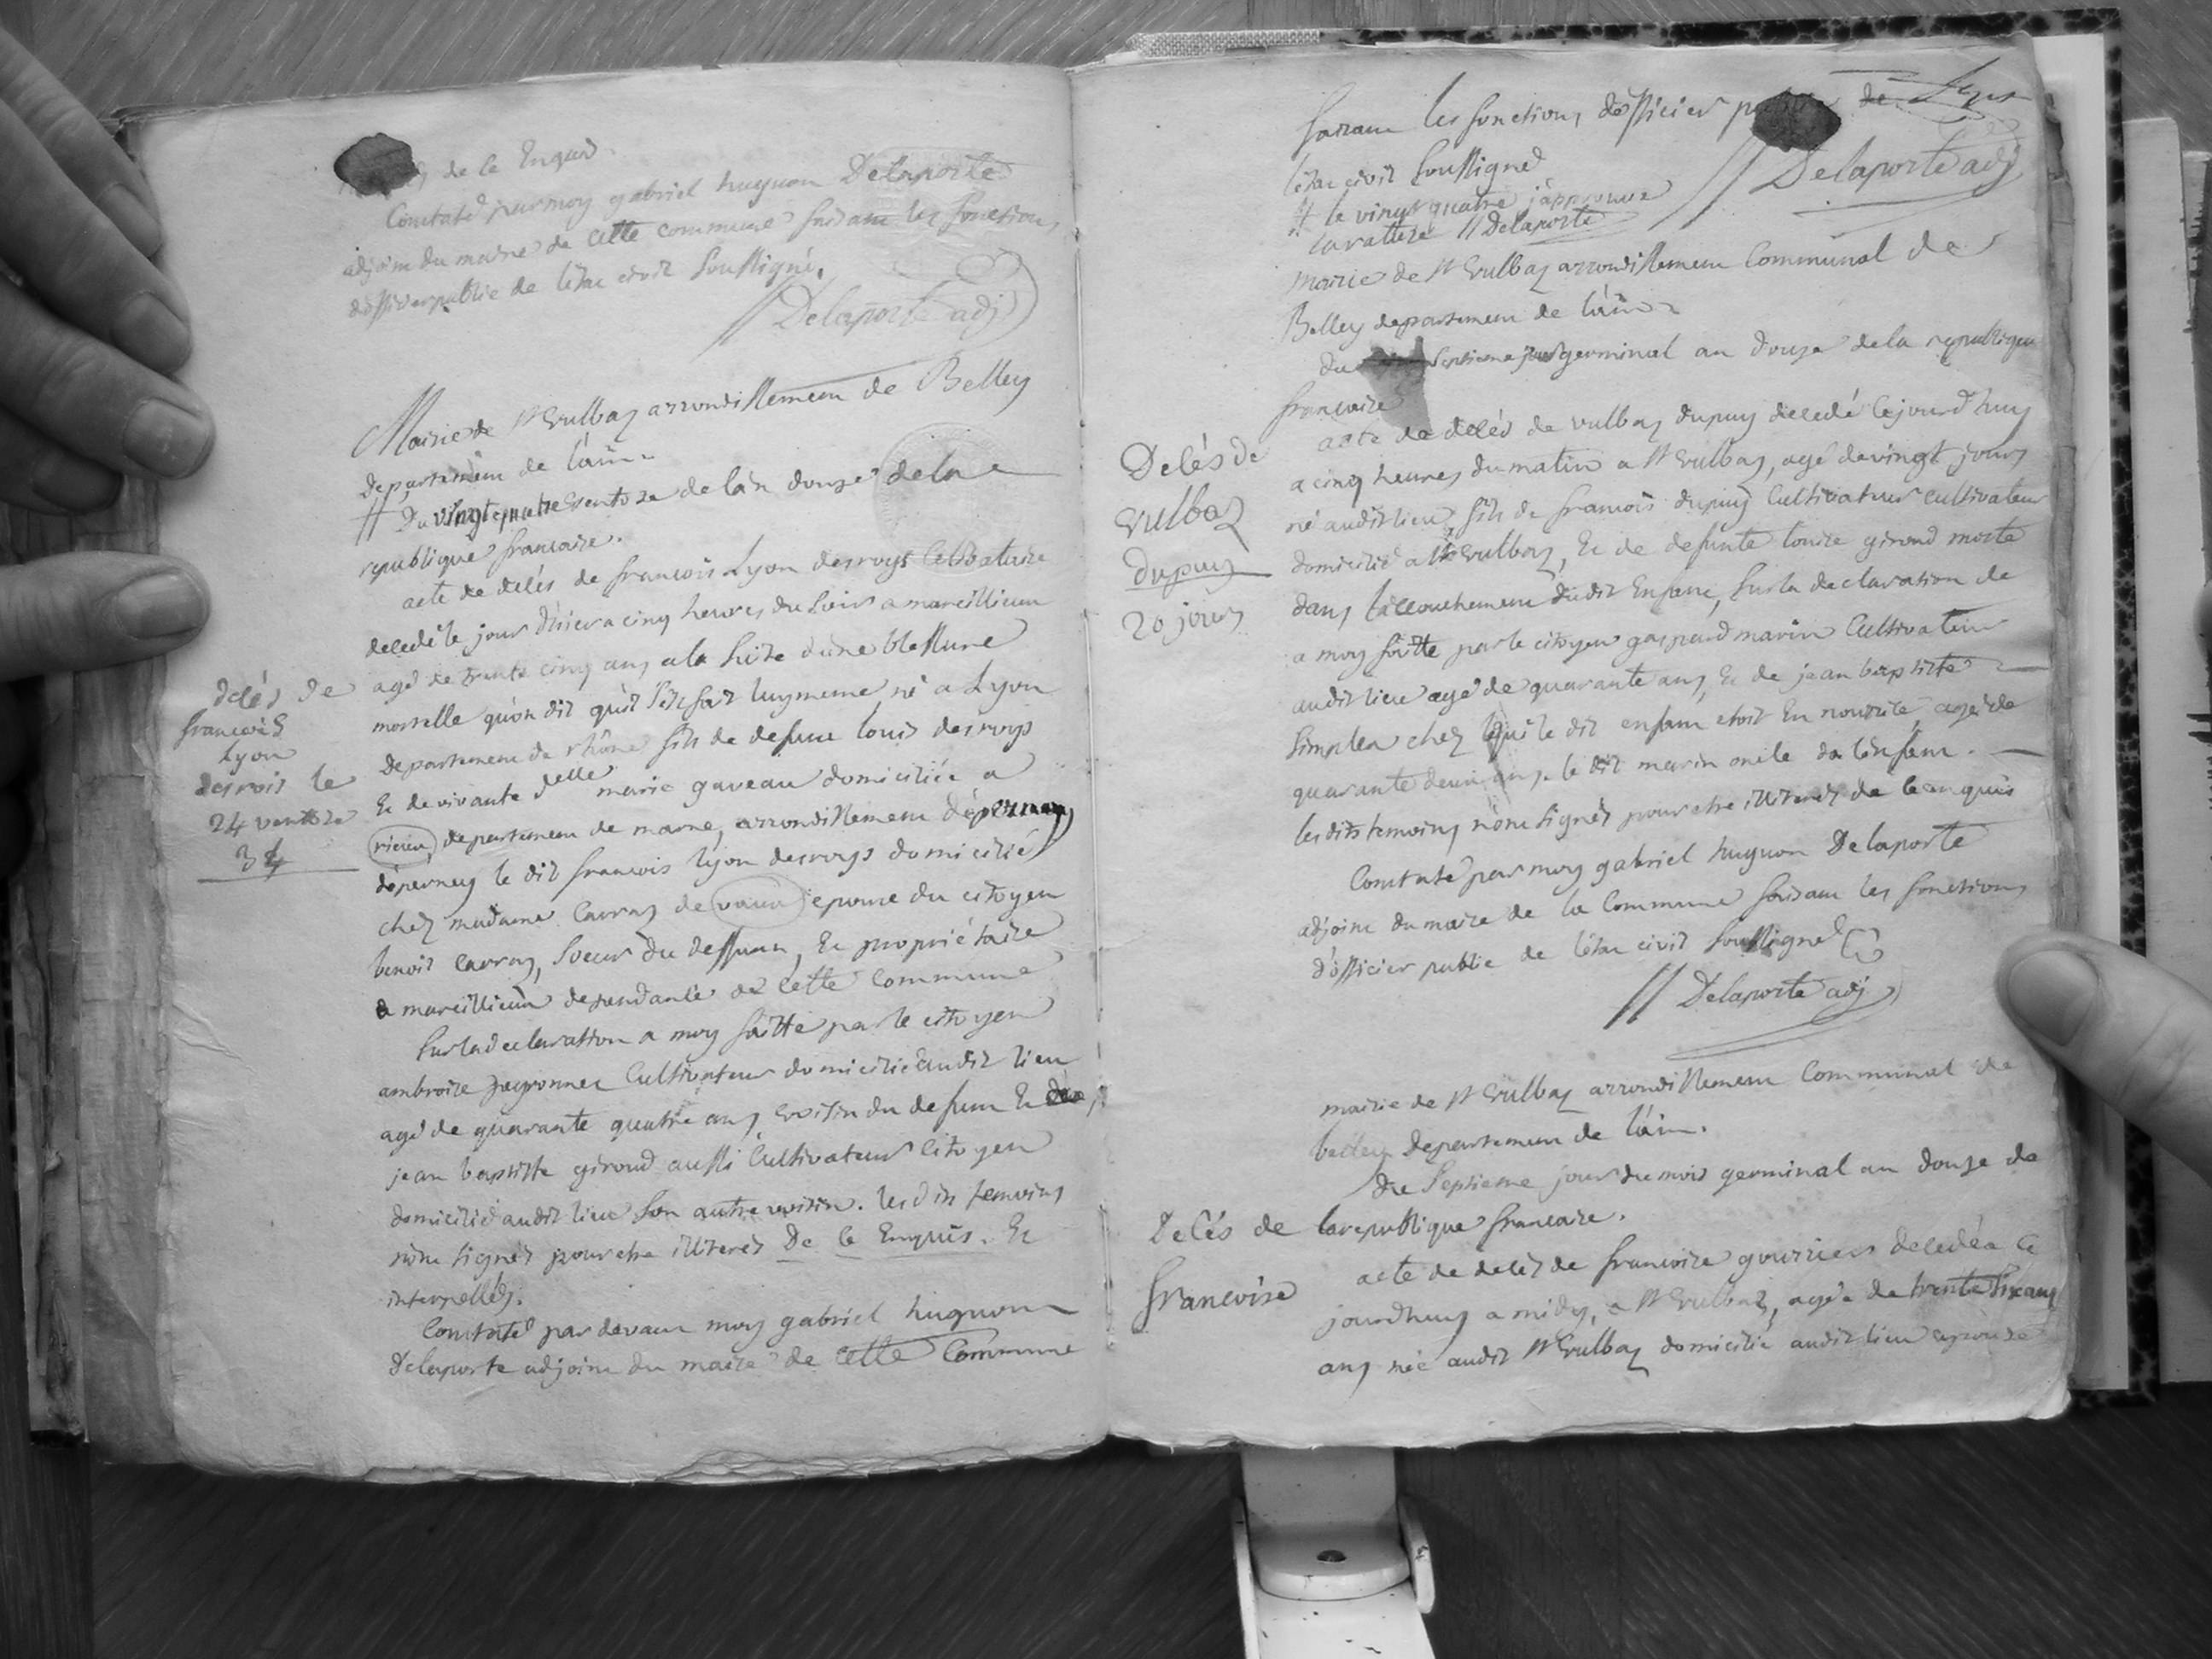 de ce Enquis.
Constaté par moy gabriel huguon Delaporte
adjoint du maire de cette commune faisant les fonctions
dofficier public de létat civil Soussigné.
Delaporte adj
Mairie de St Vulbaz arrondissement de Belley
departement de láin
# Du vingt quatre ventoze de lán douze de la
republique francaise.
acte de décés de francois Lyon desroys Celibataire
decedé le jour d'hier a cinq heures du Soir a marcillieux
agé de trente cinq ans a la Suite dúne blessure
mortelle qúon dit qúil s'est fait luy meme né a Lyon
departement de rhône fils de defunt louis desroys
Et de vivante delle marie gaveau domiciliée a
rieux, departement de marne, arrondissement dépernay
dépernay le dit francois lyon desroys domicilié
chez madame Carraz de vaux epouse du citoyen
benoit Carraz, Soeur du deffunt, Et propriétaire
a marcillieux dependante de cette commune
Sur la declaration a moy faitte par le citoyen
ambroise peyronnet Cultivateur domicilié audit lieu
agé de quarante quatre ans, voisin du defunt Et de
jean baptiste giroud aussi Cultivateur Citoyen
domicilié audit lieu Son autre voisin. lesdits temoins
nónt signés pour etre illiterés De ce Enquis. Et
interpellés.
Constaté par devant moy gabriel huguon
Delaporte adjoint du maire de cette Commune
décés de
francois
Lyon
desrois le
24 ventoze
34
faisant les fonctions dófficier public de
létat civil Soussigné
Delaporte adj
# le vingt quatre j'approuve
la rature // Delaporte
mairie de St Vulbaz arrondissement Communal de
Belley departement de láin
du Septieme jour germinal an douze de la republique
francaise
acte de décés de vulbaz dupuy decedé Cejourd'huy
a cinq heures du matin a St Vulbaz, agé de vingt jours
né audit lieu, fils de francois dupuy Cultivateur cultivateur
domicilié a St Vulbaz, Et de defunte louise giroud morte
dans láccouchement dudit Enfant, Sur la declaration de
a moy faitte par le citoyen gaspard marin Cultivateur
audit lieu agé de quarante ans, Et de jean baptiste
Simplex chez lequi le dit enfant etoit En nourrice, agé de
quarante deux ans. le dit marin oncle de lénfant.
les dits temoins nónt signés pour etre illiterés de ce enquis
Constaté par moy gabriel huguon Delaporte
adjoint du maire de la Commune faisant les fonctions
dófficier public de létat civil Soussigné
Delaporte adj
Decés de
vulbaz
dupuy
20 jours
mairie de St Vulbaz arrondissement Communal de
belley Departement de láin.
Du Septieme jour du mois germinal an douze de
la republique francaise.
acte de decés de francoise gouriers decedée Ce
jourdhuy a midy, a St Vulbaz, agée de trente Six ans
ans née audit St Vulbaz domicilie audit lieu epouse
Decés de
francoise